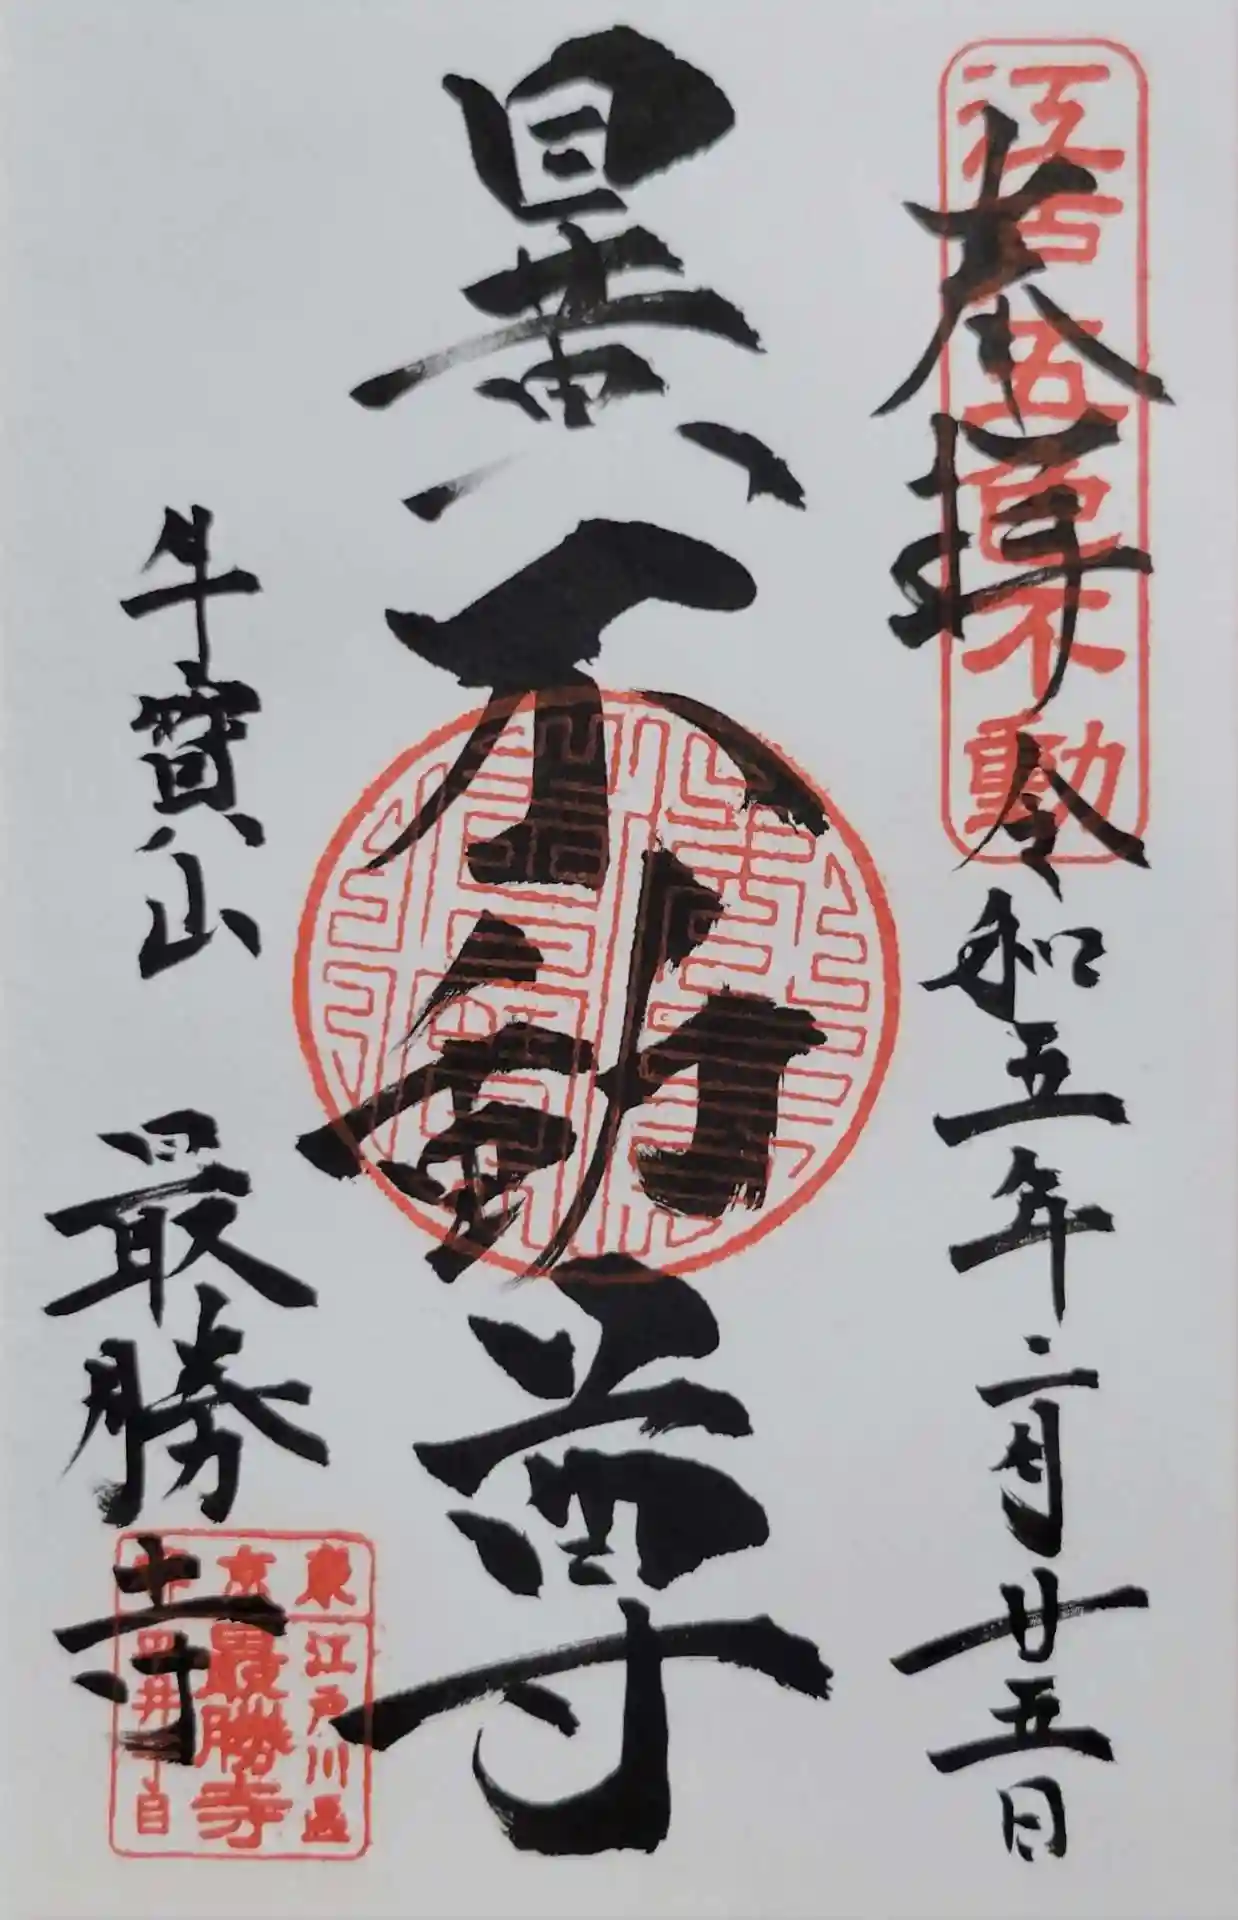 奉拝
令和五年二月廿五日
江戸五色不動
目黄不動尊
牛寳山
最勝寺
東京
江戸川區
最勝寺
平井一丁目